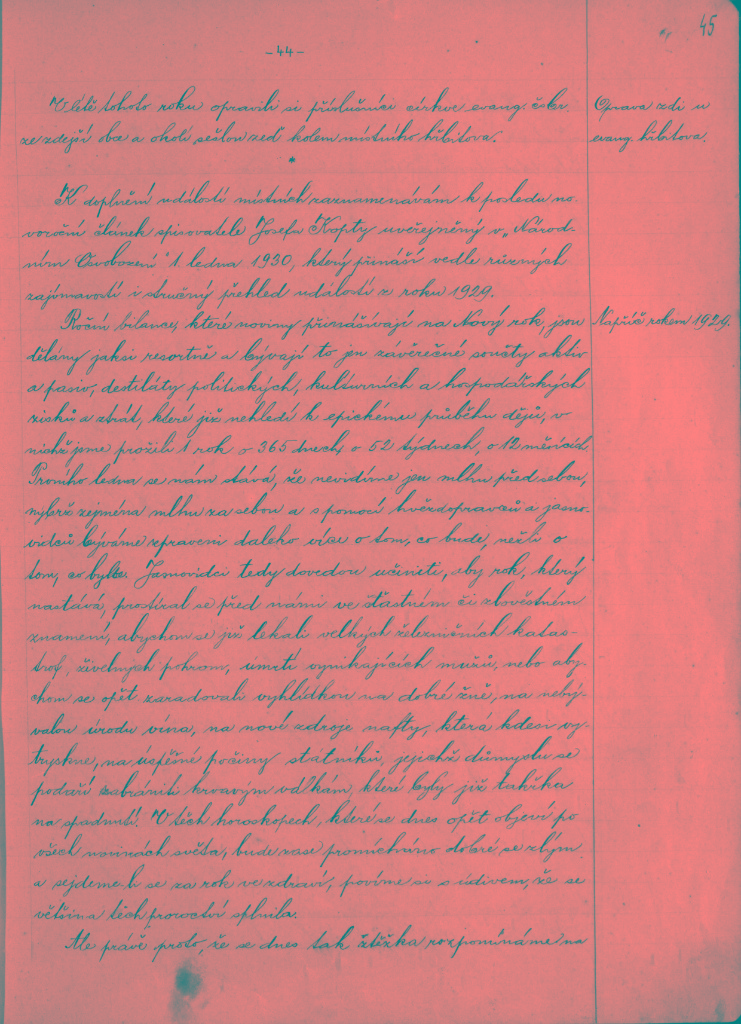 45
- 44 -
V létě tohoto roku opravili si příslušníci církve evang. česko
ze zdejší obce a okolí sešlou zeď kolem místního hřbitova.
Oprava zdi u
evang. hřbitova.
K doplnění událostí místních zaznamenávám k posledu no-
voroční článek spisovatele Josefa Kopty uveřejněný v „Národ-
ním Osvobození" 1 ledna 1930, který přináší vedle různých
zajímavostí i stručný přehled událostí z roku 1929.
Napříč rokem 1929.
Roční bilance, které noviny přinášívají na Nový rok, jsou
dělány jaksi resortně a bývají to jen závěrečné součty aktiv
a pasiv, destiláty politických, kulturních a hospodářských
zisků a ztrát, které již nehledí k epickému průběhu dějů, v
nichž jsme prožili 1 rok o 365 dnech, o 52 týdnech, o 12 měsících.
Prvního ledna se nám stává, že nevidíme jen mlhu před sebou,
nýbrž zejména mlhu za sebou a s pomocí hvězdopravců a jasno-
vidců býváme zpraveni daleko více o tom, co bude, nežli o
tom, co bylo. Jasnovidci tedy dovedou učiniti, aby rok, který
nastává, prostíral se před námi ve šťastném či zlověstném
znamení, abychom se již lekali velkých železničních katas-
trof, živelných pohrom, úmrtí vynikajících mužů, nebo aby-
chom se opět zaradovali vyhlídkou na dobré žně, na neby-
valou úrodu vína, na nové zdroje nafty, která kdesi vy-
tryskne, na úspěšné počiny státníků, jejichž důmyslu se
podaří zabrániti krvavým válkám, které byly již takřka
na spadnutí. V těch horoskopech, které se dnes opět objeví po
všech novinách světa, bude zase promícháno dobré se zlým
a sejdeme-li se za rok ve zdraví, povíme si s údivem, že se
většina těch proroctví splnila.
Ale právě proto, že se dnes tak ztěžka rozpomínáme na